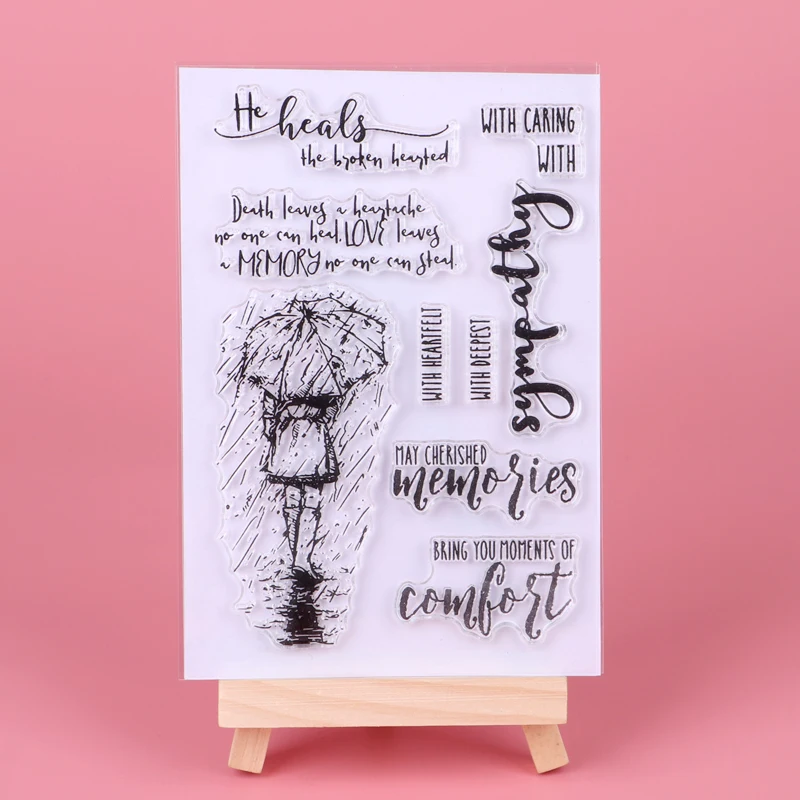 He heals
the broken hearted
WITH CARING
WITH
Death leaves a heartache
no one can heal. LOVE leaves
a MEMORY no one can steal.
sympathy
WITH HEARTFELT
WITH DEEPEST
MAY CHERISHED
memories
BRING YOU MOMENTS OF
comfort